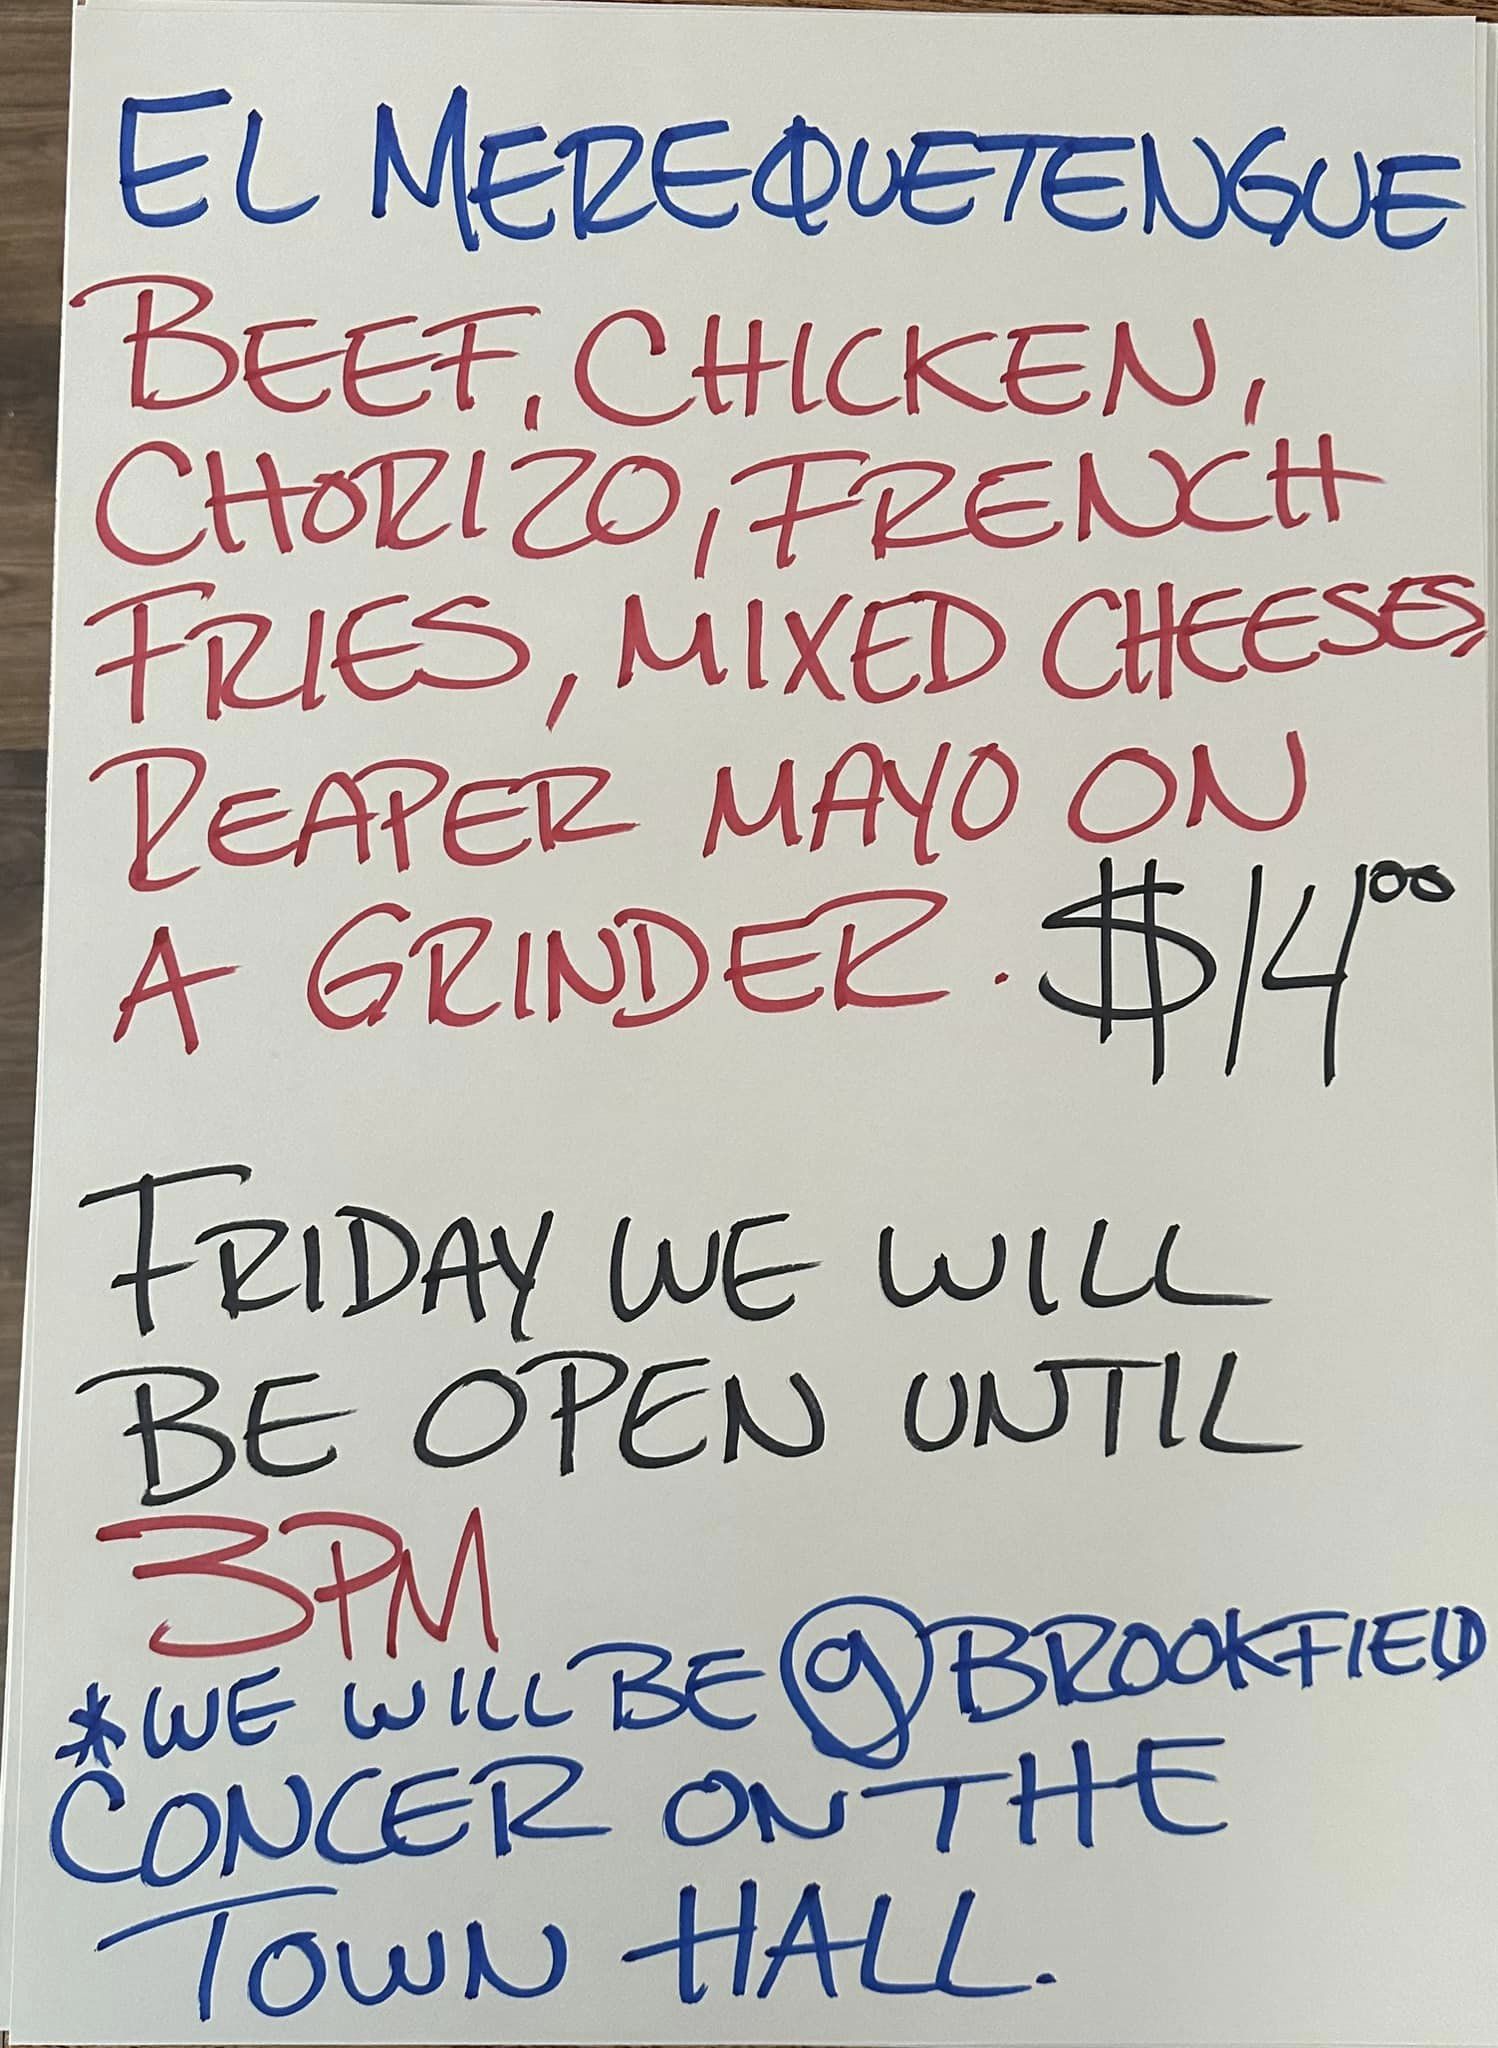 EL MEREQUETENGUE
BEEF, CHICKEN,
CHORIZO, FRENCH
FRIES, MIXED CHEESES,
REAPER MAYO ON
A GRINDER. $14.00
FRIDAY WE WILL
BE OPEN UNTIL
3PM
*WE WILL BE @ BROOKFIELD
CONCER ON THE
TOWN HALL.